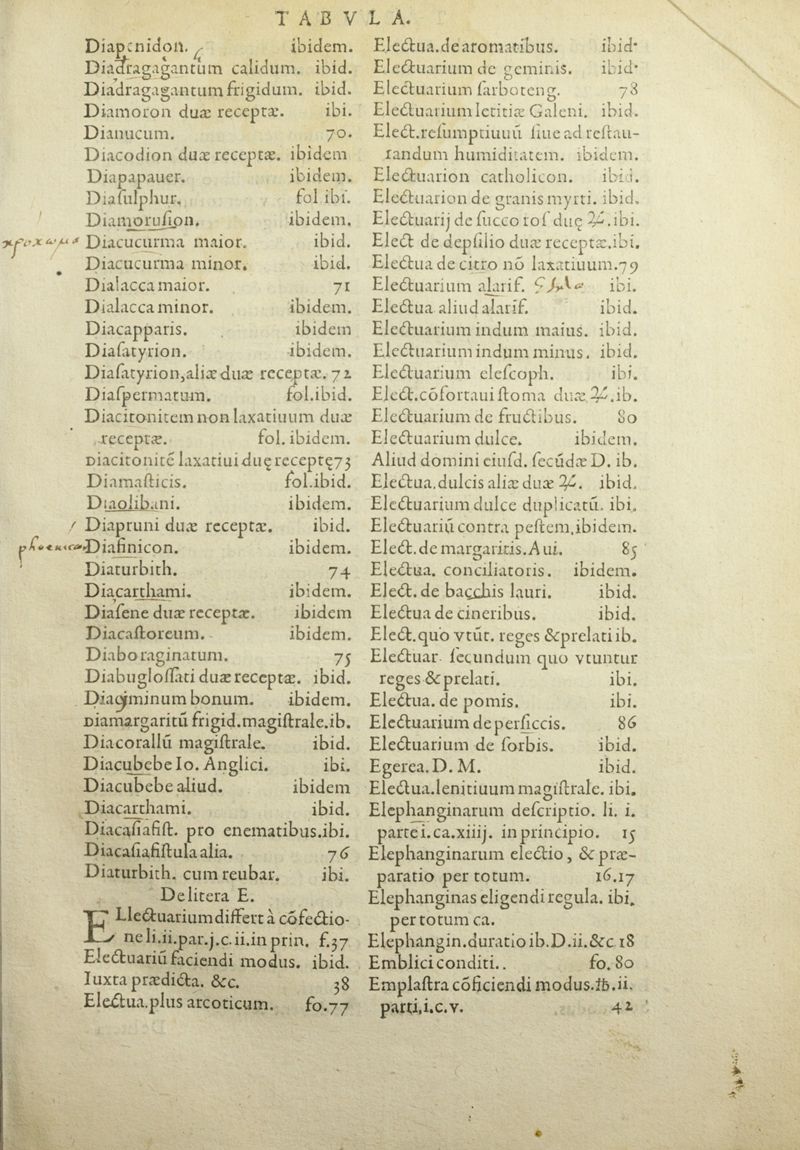 TABVLA.
Diapenidon. ibidem.
Diadragagantum calidum. ibid.
Diadragagantum frigidum. ibid.
Diamoron duæ receptæ. ibi.
Dianucum. 70.
Diacodion duæ receptæ. ibidem
Diapapauer. ibidem.
Diaſulphur. fol ibi.
Diamoruſion. ibidem.
Diacucurma maior. ibid.
Diacucurma minor. ibid.
Dialacca maior. 71
Dialacca minor. ibidem.
Diacapparis. ibidem
Diaſatyrion. ibidem.
Diaſatyrion, aliæ duæ receptæ. 72
Diaſpermatum. fol.ibid.
Diacitonitem non laxatiuum duæ
receptæ. fol. ibidem.
Diacitonitē laxatiui duę receptę 73
Diamaſticis. fol.ibid.
Diaolibani. ibidem.
Diapruni duæ receptæ. ibid.
Diafinicon. ibidem.
Diaturbith. 74
Diacarthami. ibidem.
Diaſene duæ receptæ. ibidem
Diacaſtoreum. ibidem.
Diaboraginatum. 75
Diabugloſſati duæ receptæ. ibid.
Diacyminum bonum. ibidem.
Diamargaritū frigid.magiſtrale.ib.
Diacorallū magiſtrale. ibid.
Diacubebe Io. Anglici. ibi.
Diacubebe aliud. ibidem
Diacarthami. ibid.
Diacaſiafiſt. pro enematibus.ibi.
Diacaſiafiſtula alia. 76
Diaturbith. cum reubar. ibi.
De litera E.
ELlectuarium differt à cōfectio-
ne li.ii.par.j.c.ii.in prin. f.37
Electuariū faciendi modus. ibid.
Iuxta prædicta. &c. 38
Electua.plus arcoticum. fo.77
Electua.de aromatibus. ibid.
Electuarium de geminis. ibid.
Electuarium ſarboteng. 78
Electuarium letitiæ Galeni. ibid.
Elect.reſumptiuuū ſiue ad reſtau-
randum humiditatem. ibidem.
Electuarion catholicon. ibid.
Electuarion de granis myrti. ibid.
Electuarij de ſucco roſ duę ℞.ibi.
Elect de depſilio duæ receptæ.ibi.
Electua de citro nō laxatiuum.79
Electuarium alarif. ibi.
Electua aliud alarif. ibid.
Electuarium indum maius. ibid.
Electuarium indum minus. ibid.
Electuarium eleſcoph. ibi.
Elect.cōfortaui ſtoma duæ ℞.ib.
Electuarium de fructibus. 80
Electuarium dulce. ibidem.
Aliud domini eiuſd. ſecūdæ D. ib.
Electua.dulcis aliæ duæ ℞. ibid.
Electuarium dulce duplicatū. ibi.
Electuariū contra peſtem.ibidem.
Elect.de margaritis.Aui. 85
Electua. conciliatoris. ibidem.
Elect.de bacchis lauri. ibid.
Electua de cineribus. ibid.
Elect.quo vtūt. reges &prelati ib.
Electuar. ſecundum quo vtuntur
reges & prelati. ibi.
Electua. de pomis. ibi.
Electuarium de perſiccis. 86
Electuarium de ſorbis. ibid.
Egerea.D.M. ibid.
Electua.lenitiuum magiſtrale. ibi.
Elephanginarum deſcriptio. li. i.
parte i.ca.xiiij. in principio. 15
Elephanginarum electio, & præ-
paratio per totum. 16.17
Elephanginas eligendi regula. ibi.
per totum ca.
Elephangin.duratio ib.D.ii.&c 18
Emblici conditi.. fo.80
Emplaſtra cōficiendi modus.ib.ii.
parti,i.c.v. 42